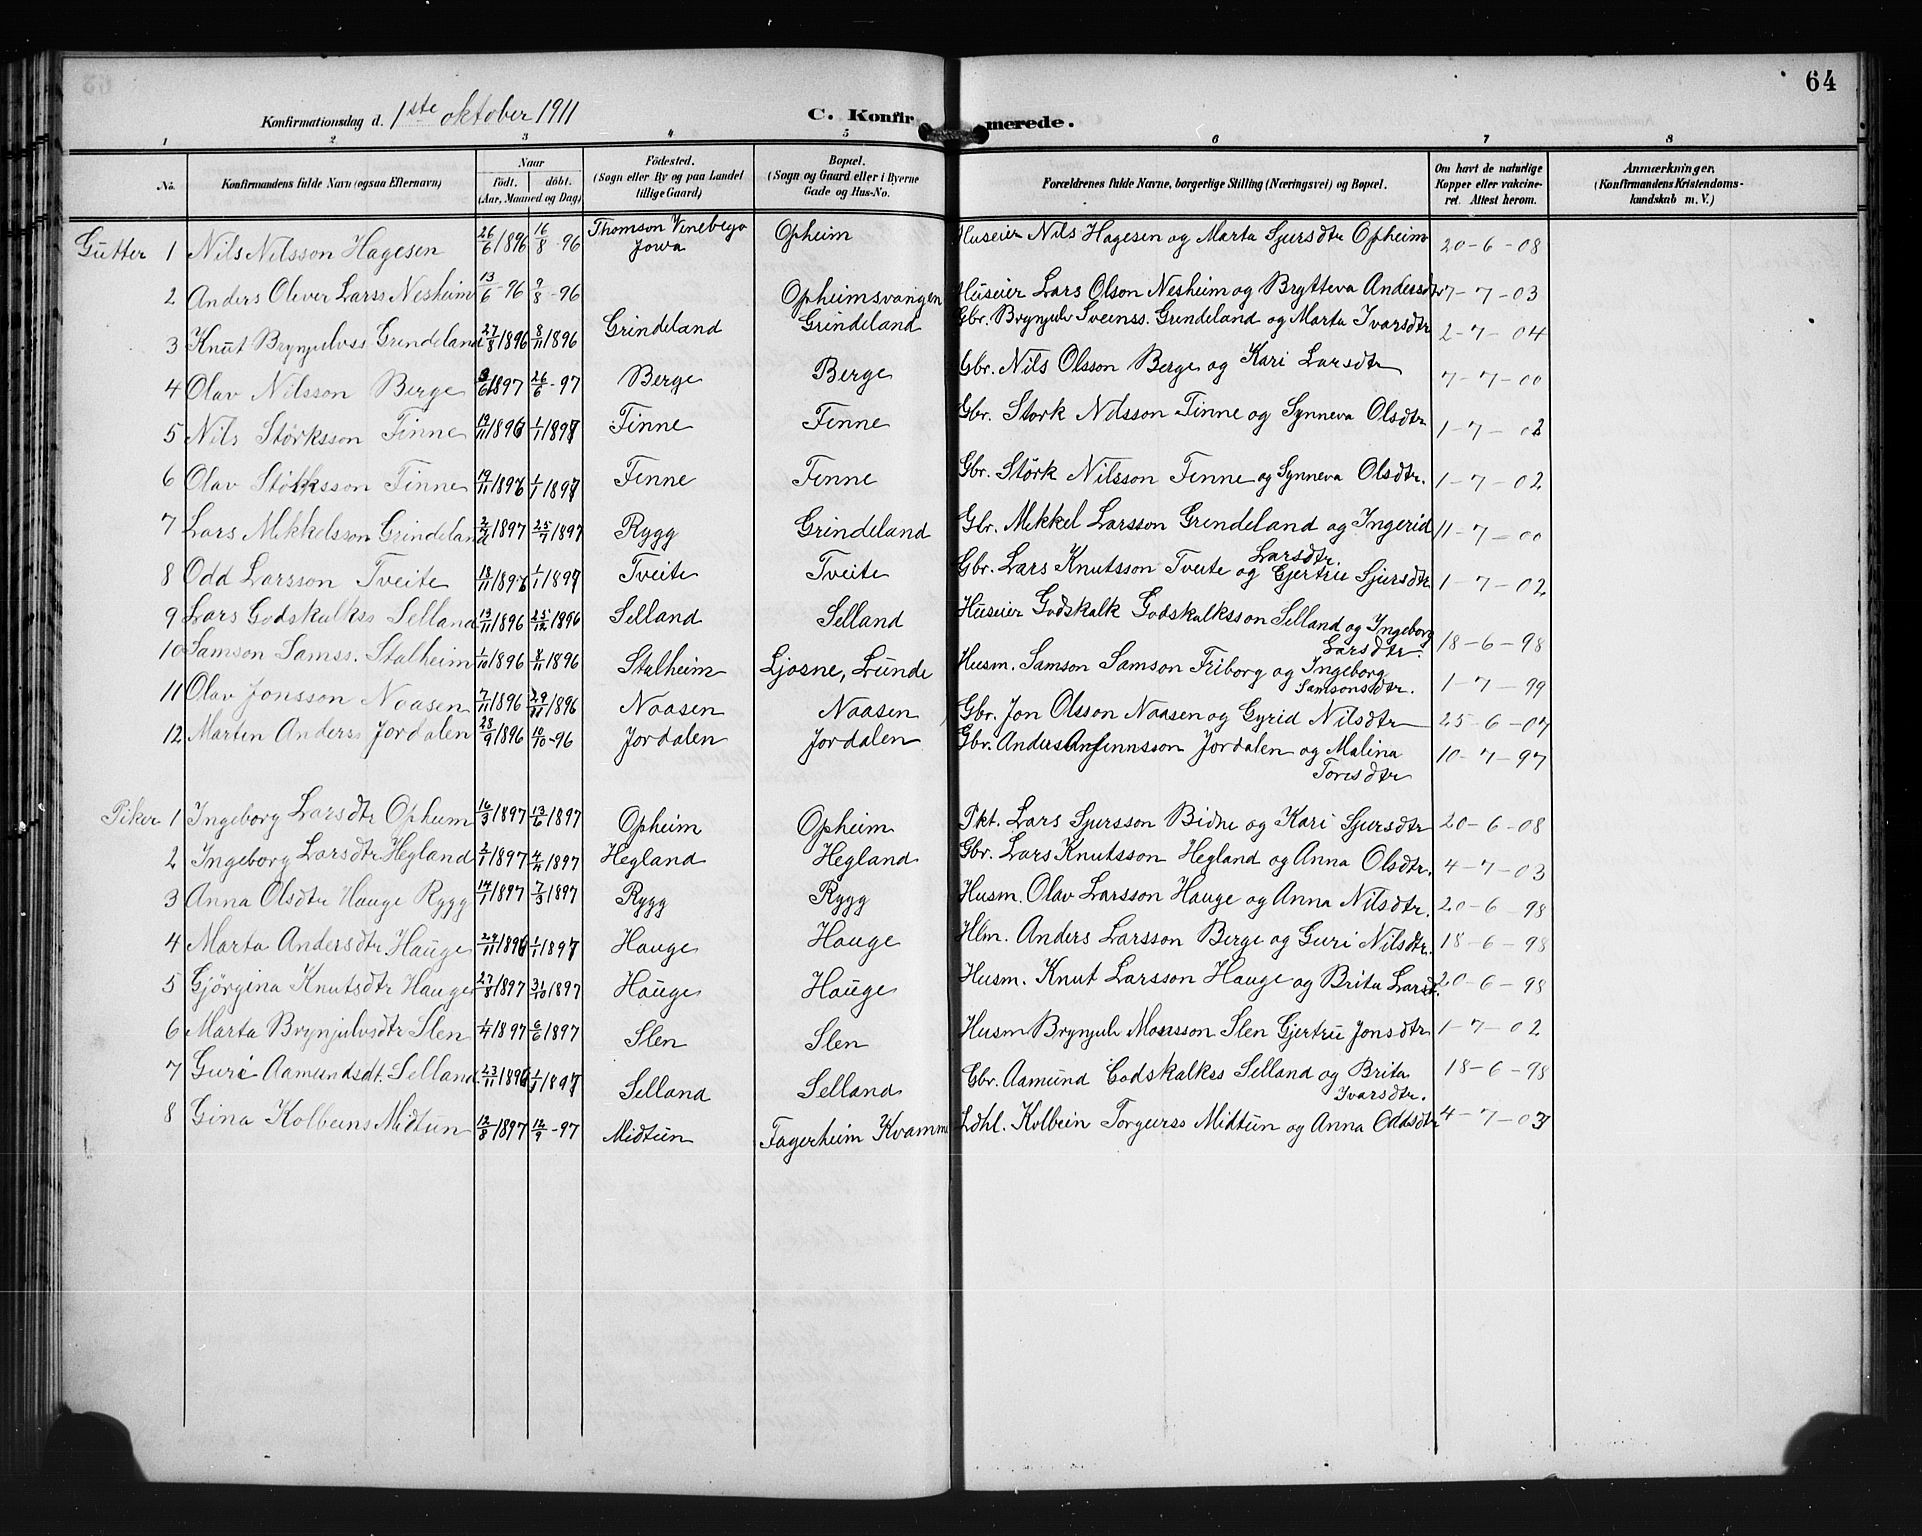 64
Konfirmationsdag d. 1ste oktober 1911 C. Konfirmerede.
1 2 3 4 5 6 7 8
No. Konfirmandens fulde Navn (ogsaa Efternavn) Naar födt. döbt. (Aar, Maaned og Dag) Födested. (Sogn eller By og paa Landet tillige Gaard) Bopæl. (Sogn og Gaard eller i Byerne Gade og Hus-No. Forældrenes fulde Navne, borgerlige Stilling (Næringsvei) og Bopæl. Om havt de naturlige Kopper eller vakcineret. Attest herom. Anmærkninger. (Konfirmandens Kristendomskundskab m. V.)
Gutter 1 Nils Nilsson Hagesen 26/6 1896 16/8 -96 Thomson Vinebego Jowa Opheim Huseier Nils Hagesen og Marta Sjursdtr Opheim 20-6-08
2 Anders Oliver Larss Nesheim 13/6 -96 9/8 -96 Opheimsvangen Huseier Lars Olson Nesheim og Brytteva Andersdtr 7-7-03
3 Knut Brynjulvss Grindeland 27/8 1896 8/11 1896 Grindeland Grindeland Gbr. Brynjulv Sveinss. Grindeland og Marta Ivarsdtr 2-7-04
4 Olav Nilsson Berge 3/6 1897 26/6 -97 Berge Berge Gbr. Nils Olsson Berge og Kari Larsdtr 7-7-00
5 Nils Störksson Finne 19/11 1896 1/1 1897 Finne Finne Gbr. Störk Nilsson Finne og Synneva Olsdtr 1-7-02
6 Olav Störksson Finne 19/11 1896 1/1 1897 Finne Finne Gbr. Störk Nilsson Finne og Synneva Olsdtr. 1-7-02
7 Lars Mikkelsson Grindeland 1897 25/7 1897 Rygg Grindeland Gbr. Mikkel Larsson Grindeland og Ingerid Larsdtr. 11-7-00
8 Odd Larsson Tveite 18/11 1896 1/1 1897 Tveite Tveite Gbr. Lars Knutsson Tveite og Gjertru Sjursdtr 1-7-02
9 Lars Godskalkss Selland 13/11 1896 25/12 1896 Selland Selland Huseier Godskalk Godskalksson Selland og Ingeborg Larsdtr. 18-6-98
10 Samson Samss. Stalheim 1/10 1896 8/11 1896 Stalheim Ljosne, Lunde Husm. Samson Samson Friborg og Ingeborg Samsonsdtr. 1-7-99
11 Olav Jonsson Naasen 7/11 1896 29/11 1896 Naasen Naasen Gbr. Jon Olsson Naasen og Gyrid Nilsdtr 25-6-07
12 Martin Anderss Jordalen 28/9 1896 10/10 -96 Jordalen Jordalen Gbr. Anders Anfinnsson Jordalen og Malina Torisdtr 10-7-97
Piker 1 Ingeborg Larsdtr Opheim 16/3 1897 13/6 1897 Opheim Opheim Pkt. Lars Sjursson Bidne og Kari Sjursdtr 20-6-08
2 Ingeborg Larsdtr Hegland 2/1 1897 1897 Hegland Hegland Gbr. Lars Knutsson Hegland og Anna Olsdtr. 4-7-03
3 Anna Olsdtr Hauge Rygg 14/1 1897 7/3 1897 Rygg Rygg Husm. Olav Larsson Hauge og Anna Nilsdtr. 20-6-98
4 Marta Andersdtr Hauge 29/11 1896 1/1 1897 Hauge Hauge Hlm. Anders Larsson Berge og Guri Nilsdtr. 18-6-98
5 Gjörgina Knutsdtr Hauge 27/8 1897 31/10 1897 Hauge Hauge Husm. Knut Larsson Hauge og Brita Larsdt. 20-6-98
6 Marta Brynjulvsdtr Slen 1/4 1897 6/6 1897 Slen Slen Husm Brynjulv Monsson Slen Gjertru Jonsdtr 1-7-02
7 Guri Aamundsdt. Selland 23/11 1896 1/1 1897 Selland Selland Gbr. Aamund Godskalkss Selland og Brita Ivarsdtr. 18-6-98
8 Gina Kolbeins Midtun 12/8 1897 12/9 -97 Midtun Fagerheim Kvamme Ldhl. Kolbein Torgeirss Midtun og Anna Oddsdtr 4-7-03